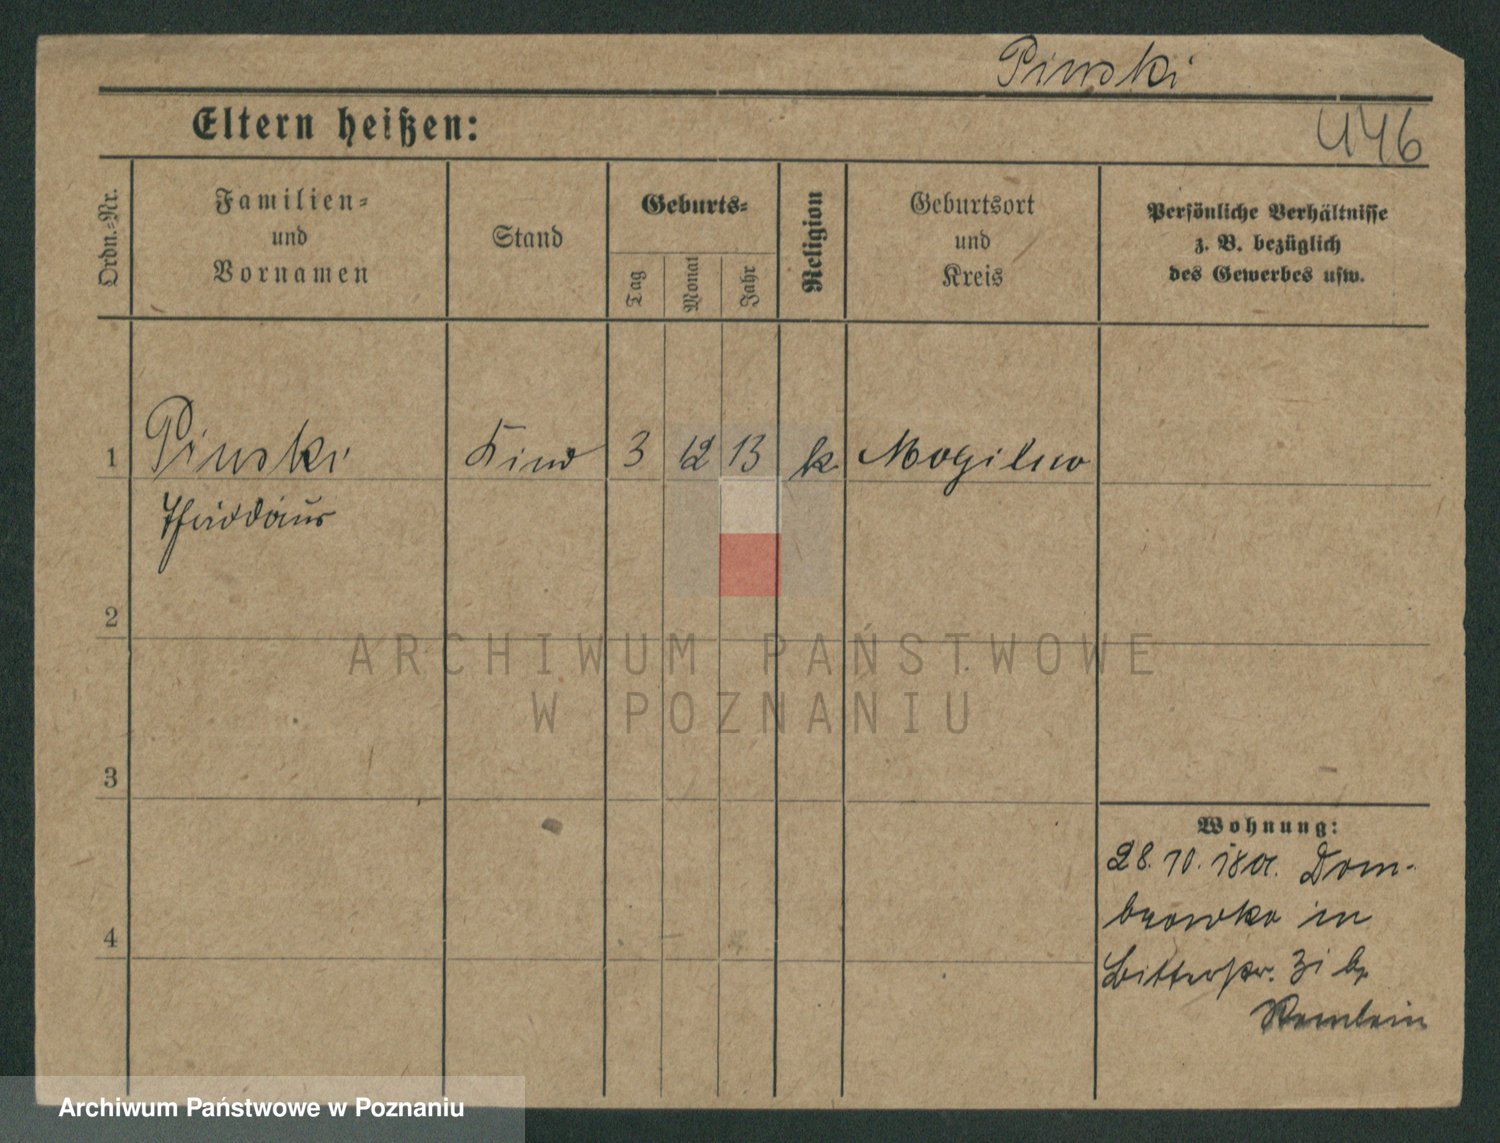 Pinski
446
Eltern heißen:
Ordn.-Nr.
Familien-
und
Vornamen
Stand
Geburts-
Tag
Monat
Jahr
Religion
Geburtsort
und
Kreis
Persönliche Verhältnisse
z. B. bezüglich
des Gewerbes usw.
1 Pinski Kind 3 12 13 k. Mogilno
Thaddäus
2
ARCHIWUM PAŃSTWOWE
W POZNANIU
3
Wohnung:
28. 10. Dom-
browka in
4
31 b.
Archiwum Państwowe w Poznaniu